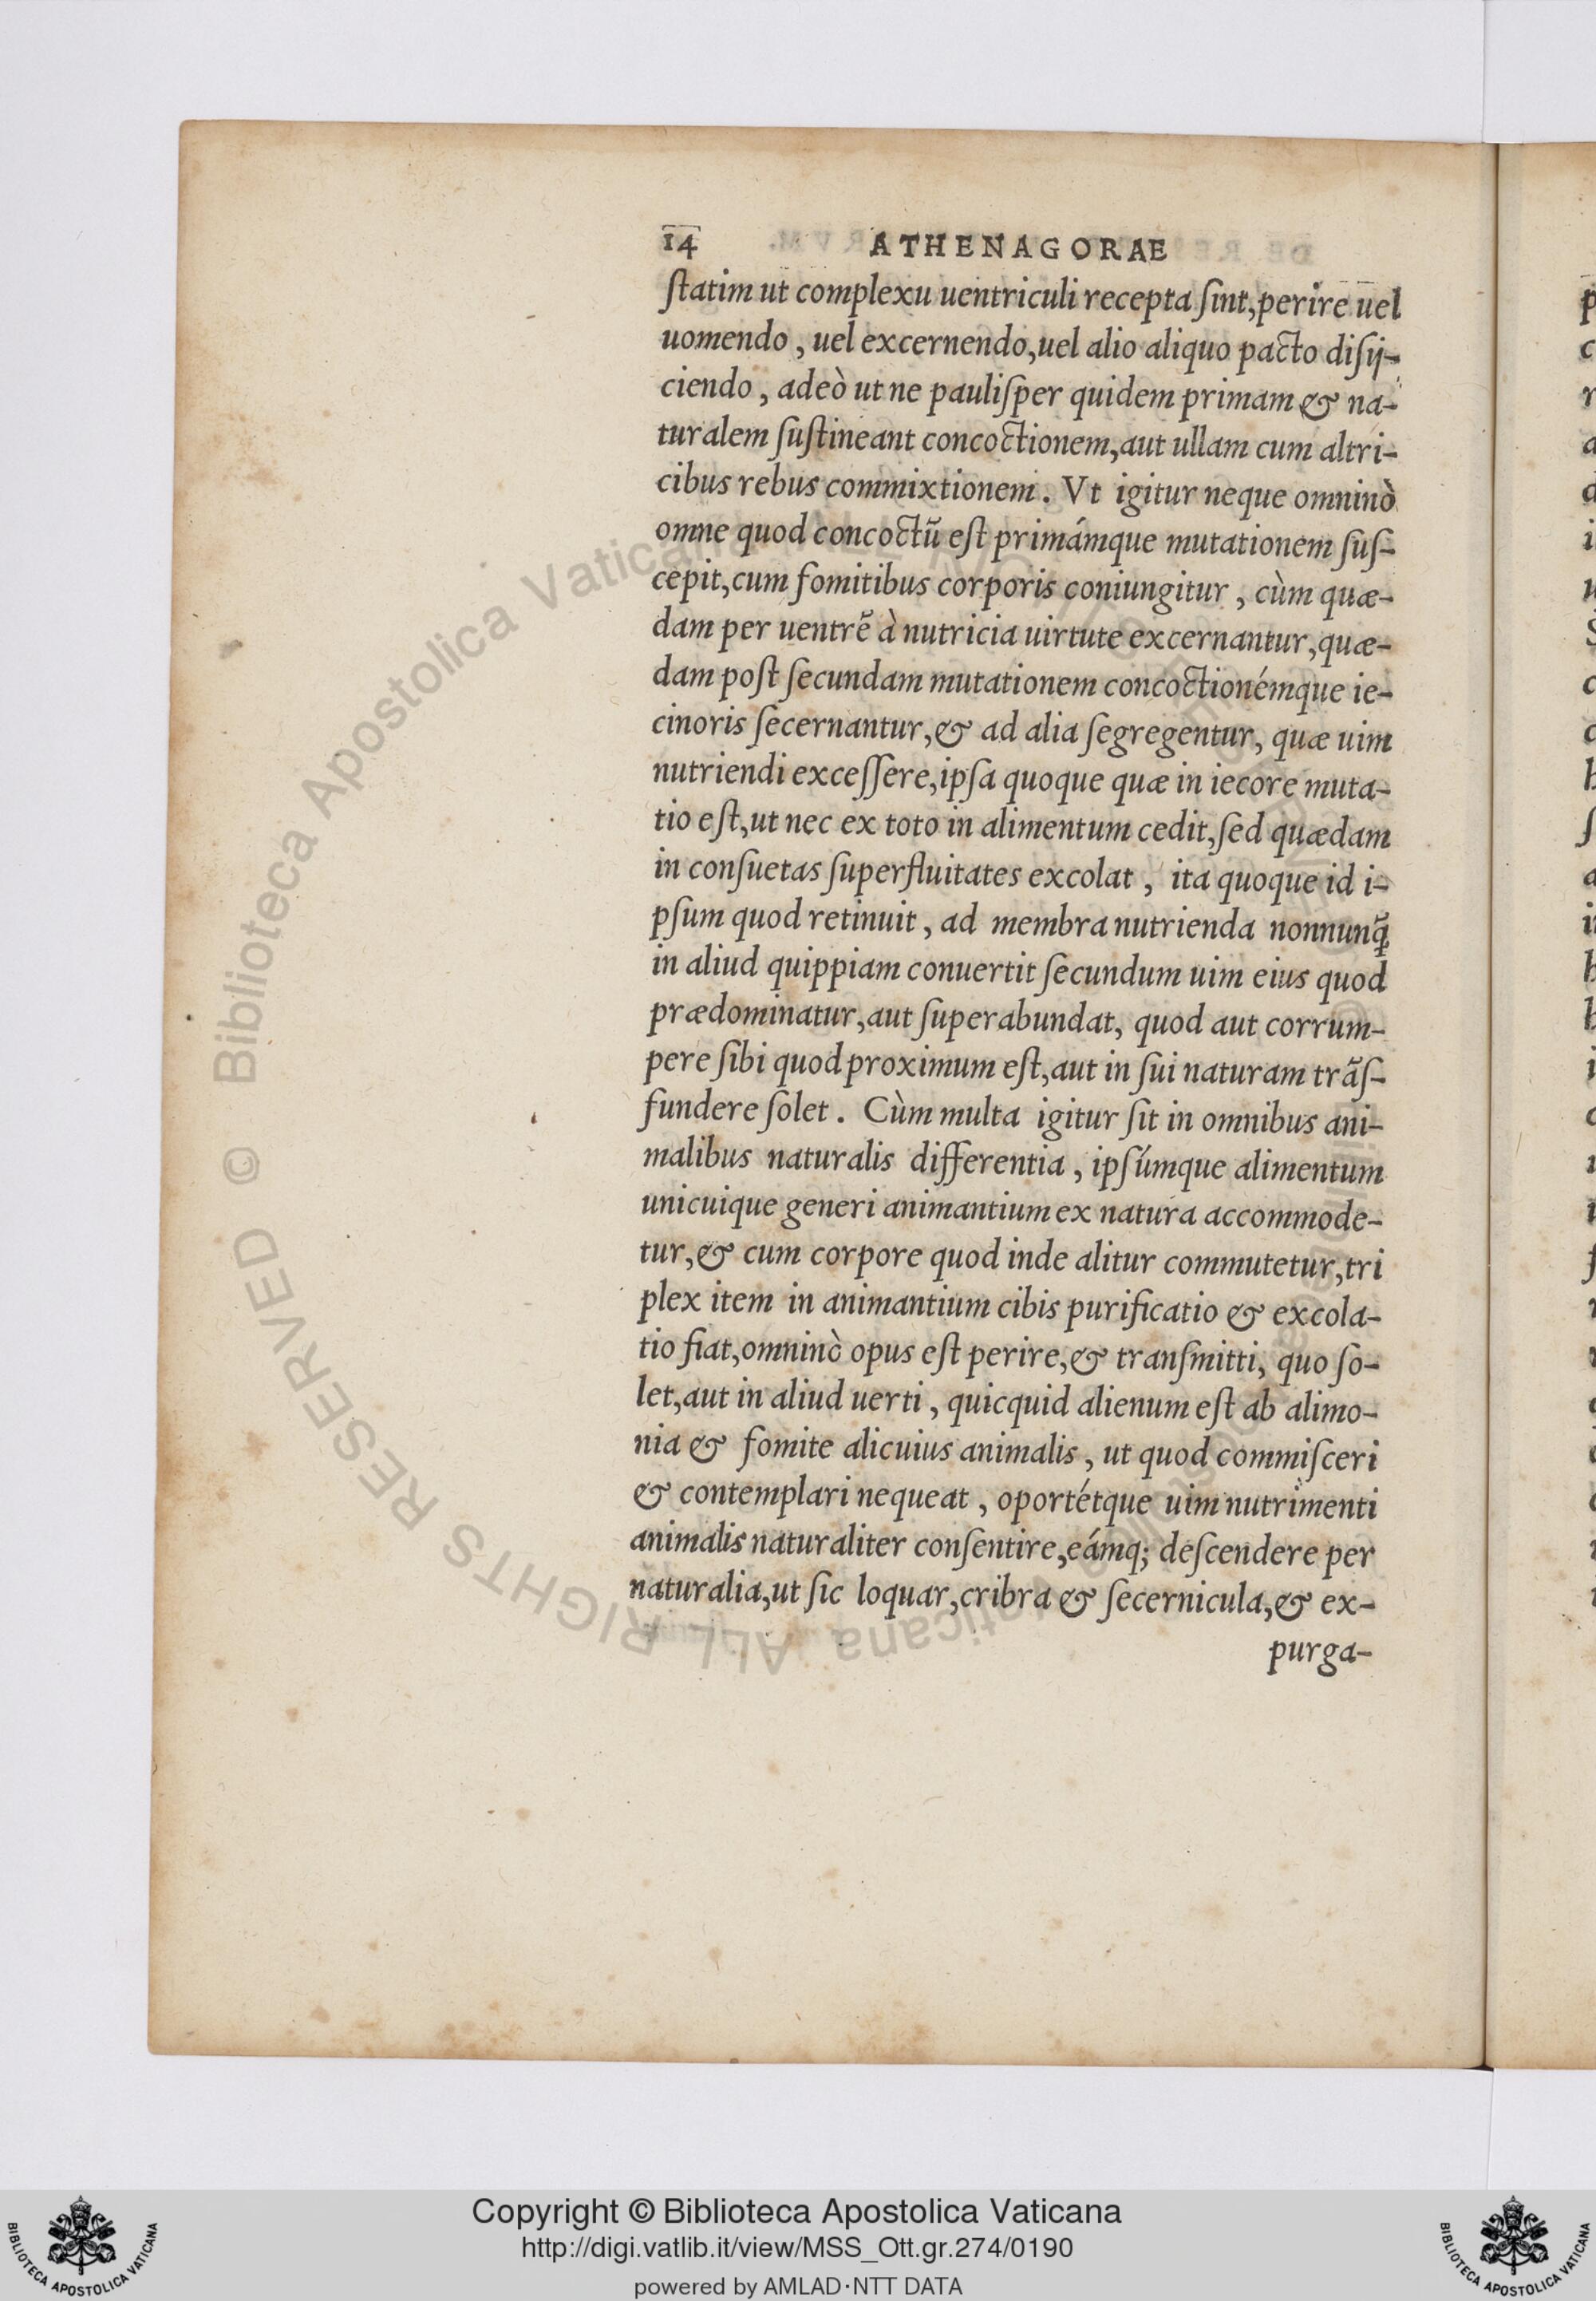 14 ATHENAGORAE
ſtatim ut complexu uentriculi recepta ſint,perire uel
uomendo , uel excernendo,uel alio aliquo pacto diſij-
ciendo , adeò ut ne pauliſper quidem primam & na-
turalem ſuſtineant concoctionem,aut ullam cum altri-
cibus rebus commixtionem. Vt igitur neque omninò
omne quod concoctũ eſt primámque mutationem ſuſ-
cepit,cum fomitibus corporis coniungitur , cùm quæ-
dam per uentrẽ à nutricia uirtute excernantur,quæ-
dam poſt ſecundam mutationem concoctionémque ie-
cinoris ſecernantur,& ad alia ſegregentur, quæ uim
nutriendi exceſſere,ipſa quoque quæ in iecore muta-
tio eſt,ut nec ex toto in alimentum cedit,ſed quædam
in conſuetas ſuperfluitates excolat , ita quoque id i-
pſum quod retinuit , ad membra nutrienda nonnunq̃
in aliud quippiam conuertit ſecundum uim eius quod
prædominatur,aut ſuperabundat, quod aut corrum-
pere ſibi quod proximum eſt,aut in ſui naturam trãſ-
fundere ſolet . Cùm multa igitur ſit in omnibus ani-
malibus naturalis differentia , ipſúmque alimentum
unicuique generi animantium ex natura accommode-
tur,& cum corpore quod inde alitur commutetur,tri
plex item in animantium cibis purificatio & excola-
tio fiat,omninò opus eſt perire,& tranſmitti, quo ſo-
let,aut in aliud uerti , quicquid alienum eſt ab alimo-
nia & fomite alicuius animalis , ut quod commiſceri
& contemplari nequeat , oportétque uim nutrimenti
animalis naturaliter conſentire,eámq; deſcendere per
naturalia,ut ſic loquar,cribra & ſecernicula,& ex-
purga-
© Biblioteca Apostolica Vaticana ALL RIGHTS RESERVED
Copyright © Biblioteca Apostolica Vaticana
http://digi.vatlib.it/view/MSS_Ott.gr.274/0190
powered by AMLAD·NTT DATA
BIBLIOTECA APOSTOLICA VATICANA
BIBLIOTECA APOSTOLICA VATICANA